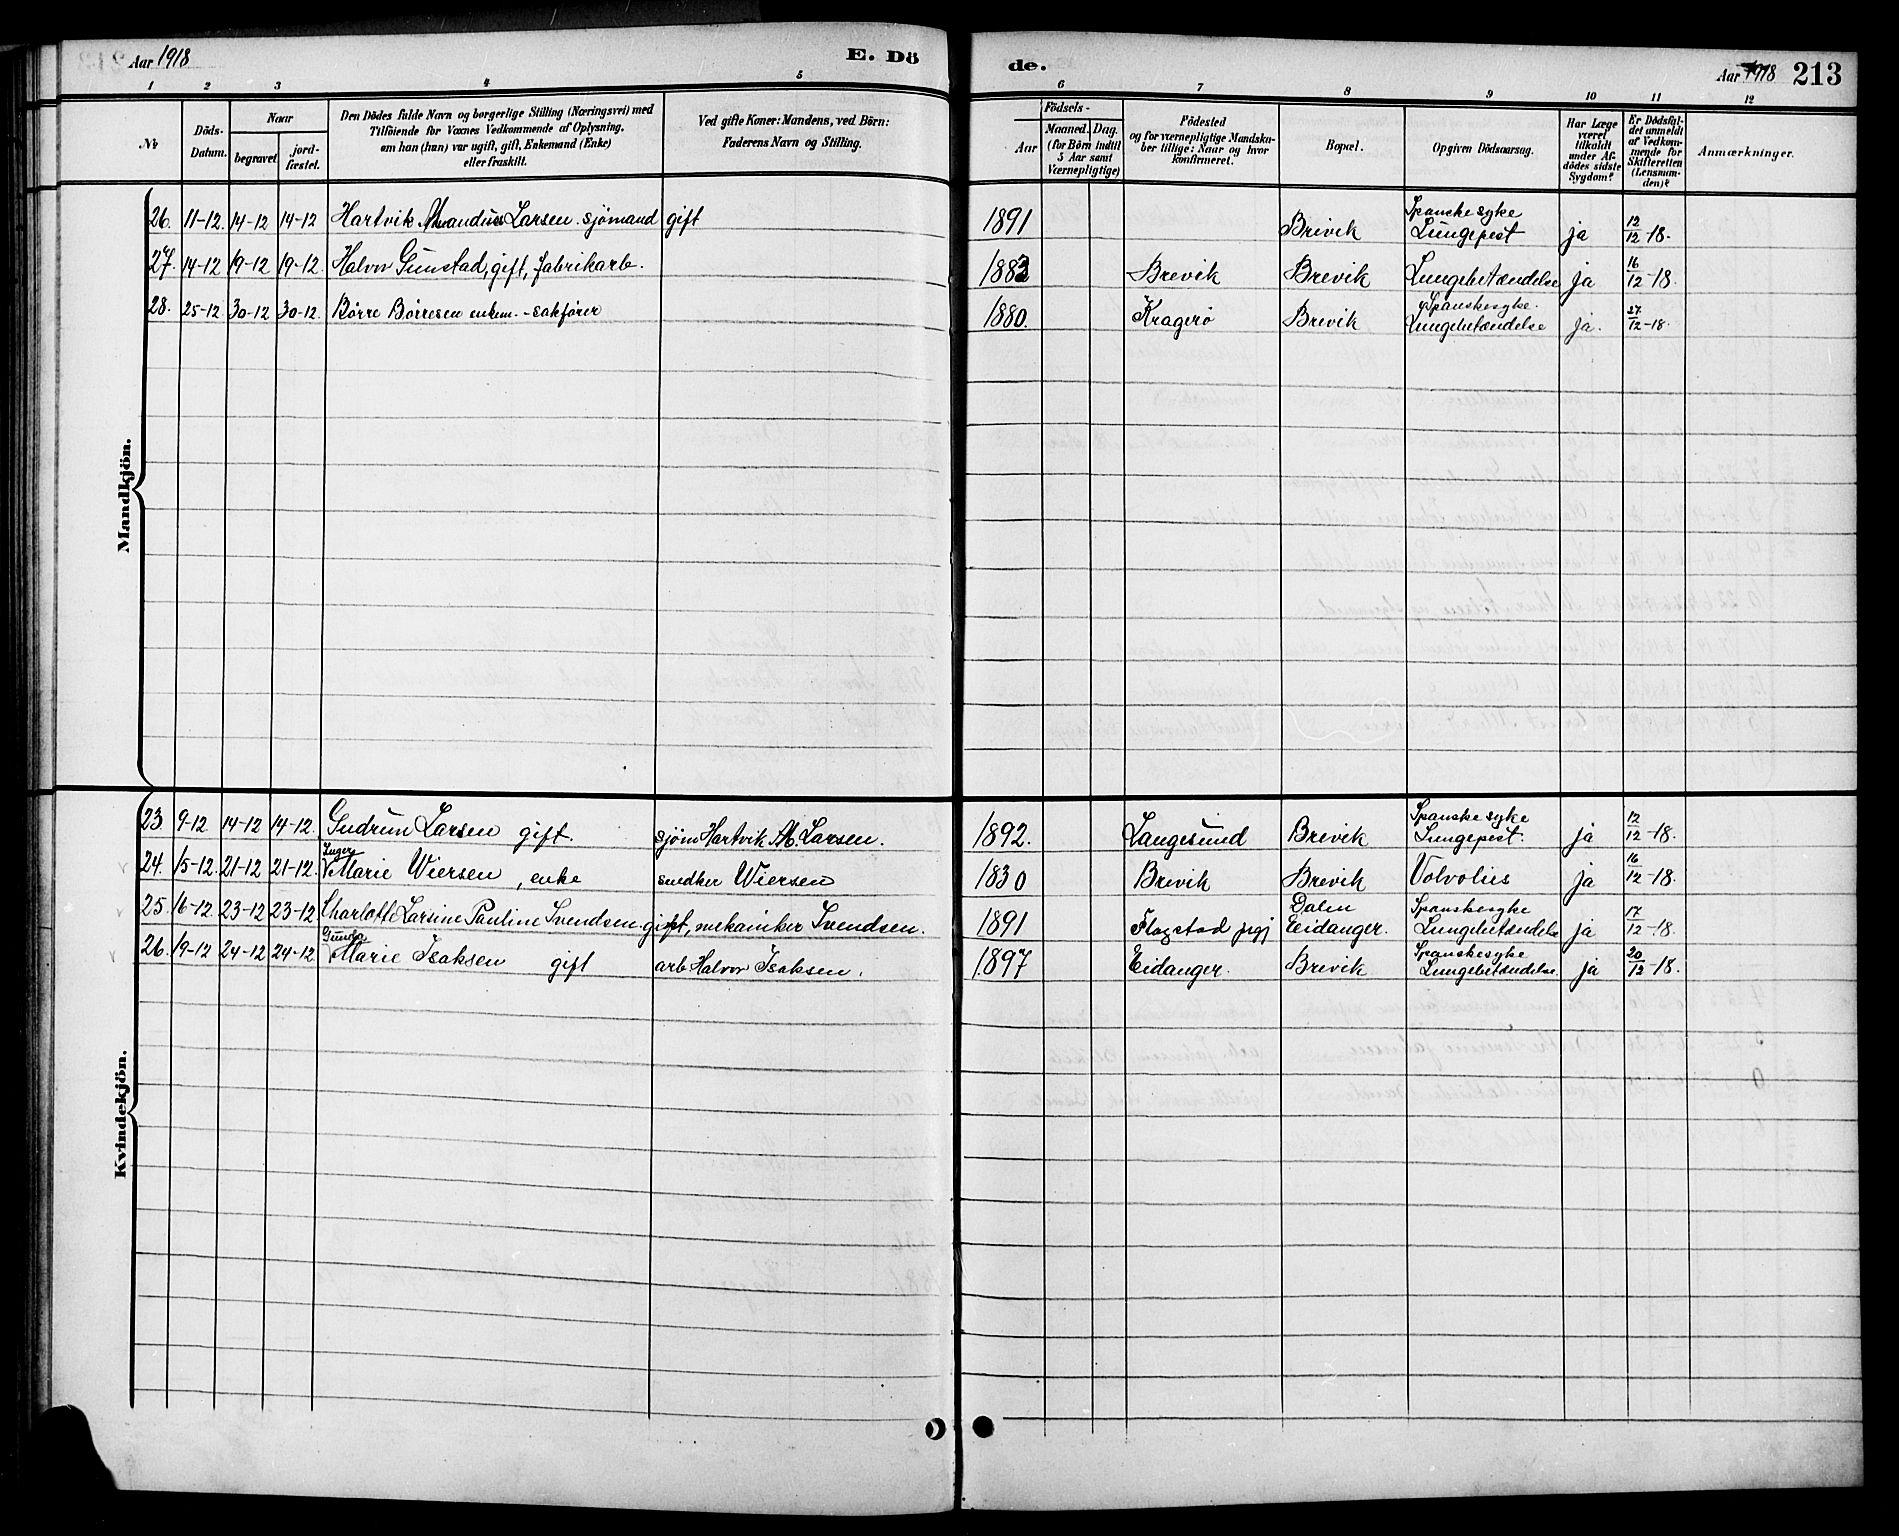 Aar 1918 E. Dö
de. Aar 1918 213
1 2 3 4 5
6 7 8 9 10 11 12
No
Döds-Datum.
Naar
begravet
jord-fæstet.
Den Dödes fulde Navn og borgerlige Stilling (Næringsvei) med
Tilföiende for Voxnes Vedkommende af Oplysning,
om han (hun) var ugift, gift, Enkemand (Enke)
eller fraskilt.
Ved gifte Koner: Mandens, ved Börn:
Faderens Navn og Stilling.
Födsels-
Aar
Maaned. Dag.
(for Börn indtil
5 Aar samt
Værnepligtige)
Födested
og for værnepligtige Mandska-
ber tillige: Naar og hvor
konfirmeret.
Bopæl.
Opgiven Dödsaarsag.
Har Læge
været
tilkaldt
under Af-
dödes sidste
Sygdom?
Er Dödsfal-
det anmeldt
af Vedkom-
mende for
Skifteretten
(Lensman-
den)?
Anmærkninger.
Mandkjön.
26. 11-12. 14-12 14-12 Hartvik Larsen. sjømand gift 1891 Brevik Spanske syke Lungepest ja 12/12-18.
27. 14-12 19-12 19-12. Halvor Gunstad, gift, fabrikarb. 1883 Brevik Brevik Lungebetændelse ja 16/12-18.
28. 25-12 30-12 30-12. Børre Børresen enkem. - sakfører 1880. Kragerø Brevik Spanskesyke. Lungebetændelse ja. 27/12-18.
Kvindekjön.
23. 9-12 14-12 14-12. Gudrun Larsen gift. sjøm Hartvik M. Larsen. 1892. Langesund Brevik Spanske syke Lungepest. ja 12/12-18.
24. 15-12. 21-12 21-12. Inger Marie Wiersen, enke Wiersen 1830 Brevik Brevik Volvolus ja 16/12-18.
25. 16-12. 23-12 23-12. Charlotte Larsine Pauline Svendsen. gift, mekaniker Svendsen. 1891 Flagstad Dalen Eidanger. Spanskesyke Lungebetændelse ja 17/12-18.
26. 19-12 24-12 24-12. Gunda Marie Isaksen gift arb Halvor Isaksen. 1897 Eidanger. Brevik Spanskesyke Lungebetændelse. ja 20/12-18.